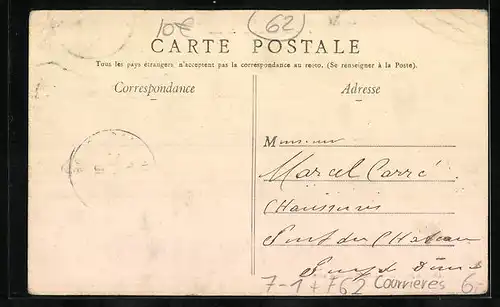 10€ (62)
CARTE POSTALE
Tous les pays étrangers n'acceptent pas la correspondance au recto. (Se renseigner à la Poste).
Correspondance
Adresse
Monsieur
Marcel Carré
Chaussures
du Chateau
7-1 762 Courrieres 6